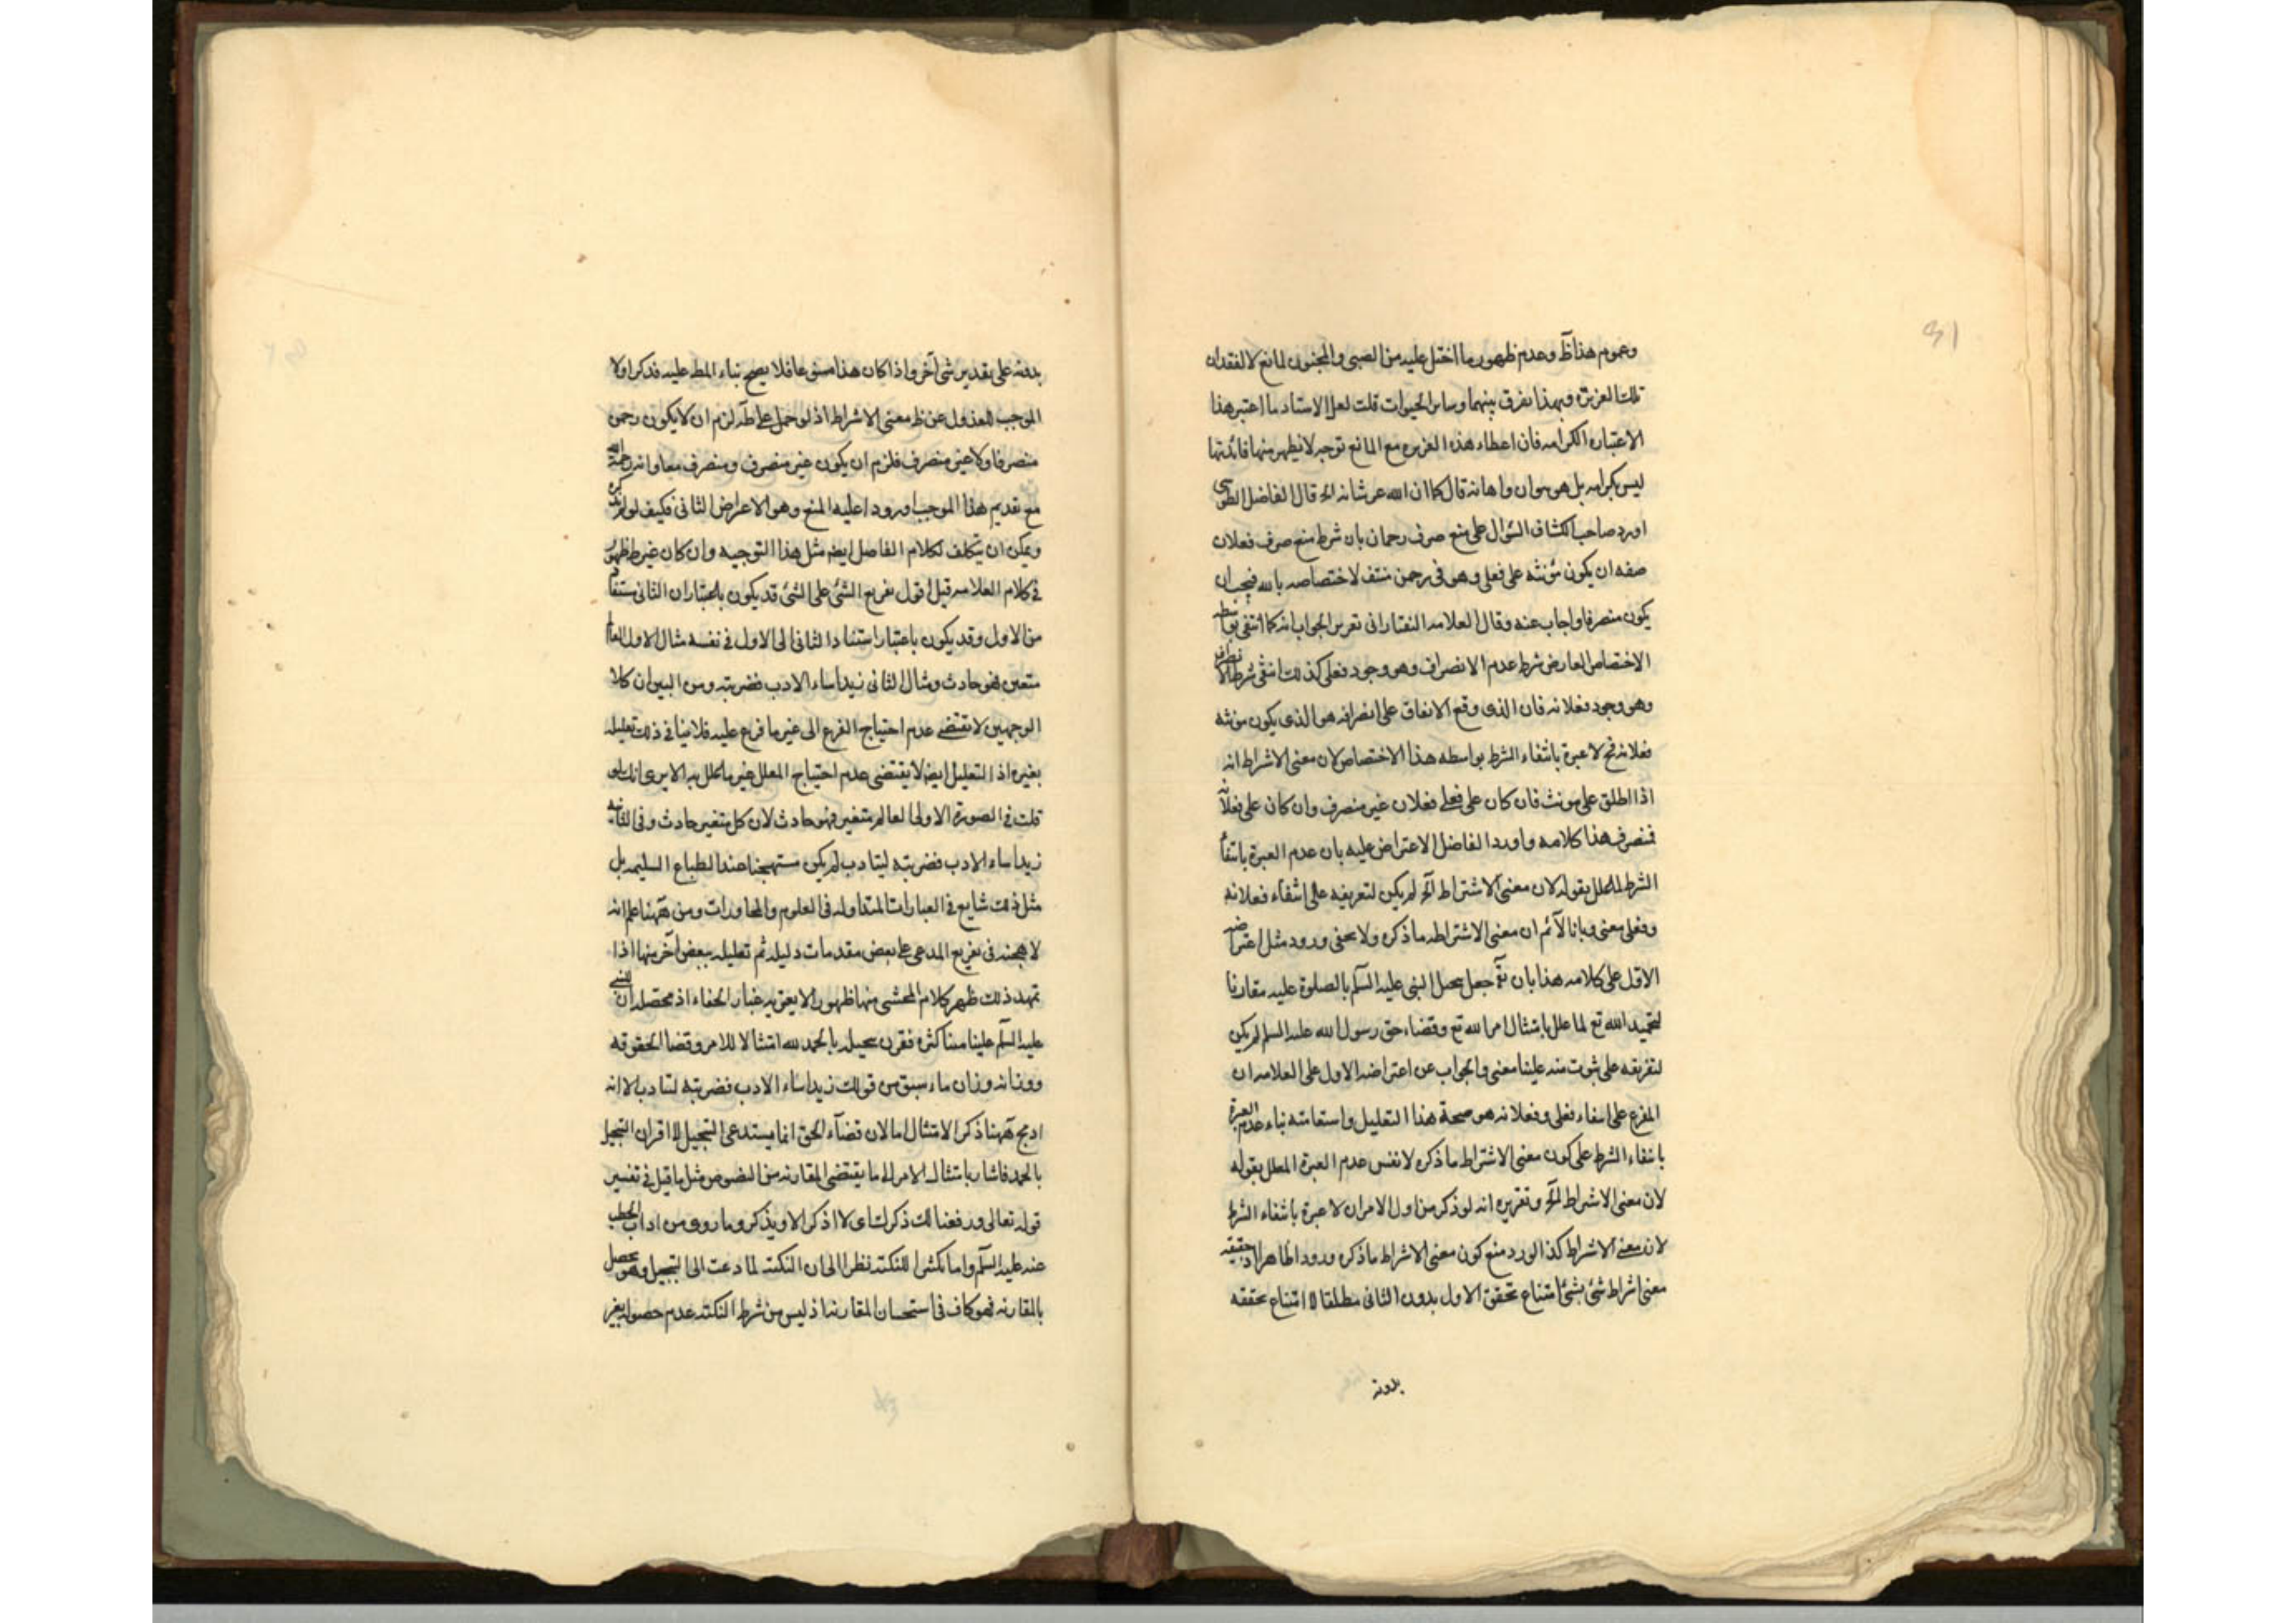 وعموم هذا ظ وعدم ظهور ما اختل عليه من الصبى والمجنون لمانع لا لفقدان
تلك الغريزة وبهذا نفرق بينهما وساير الحيوانات قلت لعل الاستاد ما اعتبر هذا
الاعتبار الكرامه فان اعطاء هذه الغريزه مع المانع توجبه لا يظهر منها فائدتها
ليس بكرامه بل هو هوان واهانه قال كما ان الله عز شانه اه قال الفاضل الطوسى
اورد صاحب الكشاف السؤال على منع صرف رحمان بان شرط منع صرف فعلان
صفه ان يكون مؤنثه على فعلى وهو فى رحمن منتف لاختصاصه بالله فيجب ان
يكون منصرفا واجاب عنه وقال العلامه التفتازانى تقرير الجواب انه كما انتفى بواسطه
الاختصاص العارض شرط عدم الانصراف وهو وجود فعلى كذلك انتفى شرط الانصراف
وهو وجود فعلانه فان الذى وقع الاتفاق على انصرافه هو الذى يكون مونثه
فعلانه فح لا عبرة بانتفاء الشرط بواسطه هذا الاختصاص لان معنى الاشراط انه
اذا اطلق على مونث فان كان على فعلى فعلان غير منصرف وان كان على فعلانه
فمنصرف هذا كلامه واورد الفاضل الاعتراض عليه بان عدم العبرة بانتفاء
الشرط المعلل بقوله لان معنى الاشتراط الخ لم يكن لتعريفه على انتفاء فعلانه
وفعلى معنى وبانا لانم ان معنى الاشتراط ما ذكره ولا يخفى ورود مثل اعتراضه
الاول على كلامه هذا بان يق جعل بجيل النبى عليه السلم بالصلوة عليه مقارنا
لتحميد الله تع لما علل بامتثال امر الله تع وقضاء حق رسول الله عليه السلم لم يكن
لتفريقه على ثبوت منه علينا معنى والجواب عن اعتراضه الاول على العلامه ان
المفرع على انتفاء فعلى وفعلانه هو صحة هذا التعليل واستقامته بناء عدم العبرة
بانتفاء الشرط على كون معنى الاشتراط ما ذكره لا نفس عدم العبرة المعلل بقوله
لان معنى الاشراط الخ وتقريره انه لو ذكر من اول الامر ان لا عبرة بانتفاء الشرط
لان معنى الاشراط كذا لورد منع كون معنى الاشراط ما ذكره ورودا ظاهرا اذ حقيقه
معنى اشراط شئ بشئ امتناع تحقق الاول بدون الثانى مطلقا لا امتناع تحققه
بدونه
بدونه على تقدير شئ آخر واذا كان هذا ممنوعا فلا يصح بناء المط عليه فذكر اولا
الموجب للعدول عن ظ معنى الاشراط اذ لو حمل على ظه لزم ان لا يكون رحمن
منصرفا ولا غير منصرف فلزم ان يكون غير منصرف ومنصرف معا وانه رحمه الله
مع تقديم هذا الموجب اورد عليه المنع وهو الاعراض الثانى فكيف لو لم يذكره
ويمكن ان يتكلف لكلام الفاضل ايضا مثل هذا التوجيه وان كان غير ظ ظهوره
فى كلام العلامه قيل اقول تفريع الشئ على الشئ قد يكون باعتبار ان الثانى مستفاد
من الاول وقد يكون باعتبار استناد الثانى الى الاول فى نفسه مثال الاول العالم
متغير فهو حادث ومثال الثانى زيد اساء الادب فضربته ومن البين ان كلا
الوجهين لا يقتضى عدم احتياج الفرع الى غير ما فرع عليه فلا ينافى ذلك تعليله
بغيره اذ التعليل ايضا لا يقتضى عدم احتياج المعلل غير ما علل به الا يرى انك لو
قلت فى الصورة الاولى العالم متغير فهو حادث لان كل متغير حادث وفى الثانيه
زيد اساء الادب فضربته ليتادب لم يكن مستهجنا عند الطباع السليمه بل
مثل ذلك شايع فى العبارات المتداوله فى العلوم والمحاورات ومن ههنا علم انه
لا هجنه فى تفريع المدعى على بعض مقدمات دليله ثم تعليله ببعض آخر منها اذا
تمهد ذلك ظهر كلام المحشى منها ظهورا لا يعتريه غبار الخفاء اذ محصله ان للنبى
عليه السلم علينا مننا كثره فقرن بجيله بالحمد لله امتثالا للامر وقضا لحقوقه
ووزانه وزان ما سبق من قولك زيد اساء الادب فضربته ليتادب الا انه
ادمج ههنا ذكر الامتثال امالان قضاء الحق انما يستدعى التبجيل لا اقران التبجيل
بالحمد فاشار بامتثال الامر الى ما يقتضى المقارنه من النصوص مثل ما قيل فى تفسير
قوله تعالى ورفعنا لك ذكرك اى لا اذكر الا ويذكر وما روى من اداب الخطب
عنه عليه السلم واما تكثيرا للنكته نظرا الى ان النكته لما دعت الى التبجيل وهو يحصل
بالمقارنه فهو كاف فى استحسان المقارنه اذ ليس من شرط النكته عدم حصوله بغير